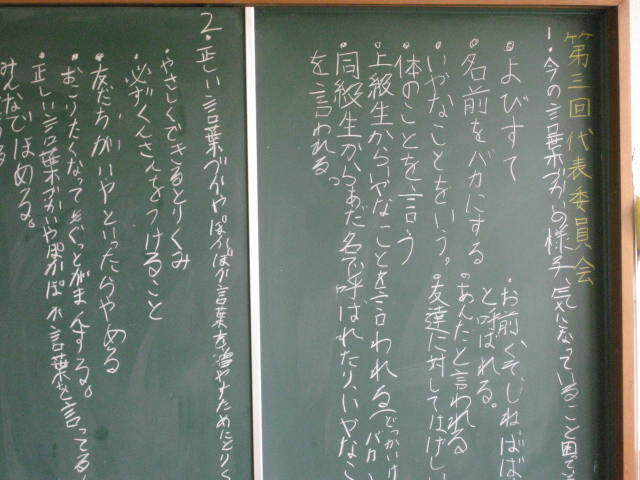 第三回代表委員会
1.今の言葉づかいの様子、気になっていること困って
・よびすて
・お前、くそじじ
・名前をバカにする
と呼ばれる。
・いやなことをいう。
・あんたと言われる
・体のことを言う
・友達に対してはげしい
・上級生からいやなことを言われる(どっかいけ
バカ
・同級生からあだ名で呼ばれたり、いやなこ
を言われる。
2.正しい言葉づかいやぽかぽか言葉を増やすためにとりく
・やさしくできるとりくみ
・必ずくんさんをつけること
・友だちがいやといったらやめる
・おこりたくなってもぐっとがまんする。
・正しい言葉づかいやぽかぽか言葉を言ってる
みんなでほめる。